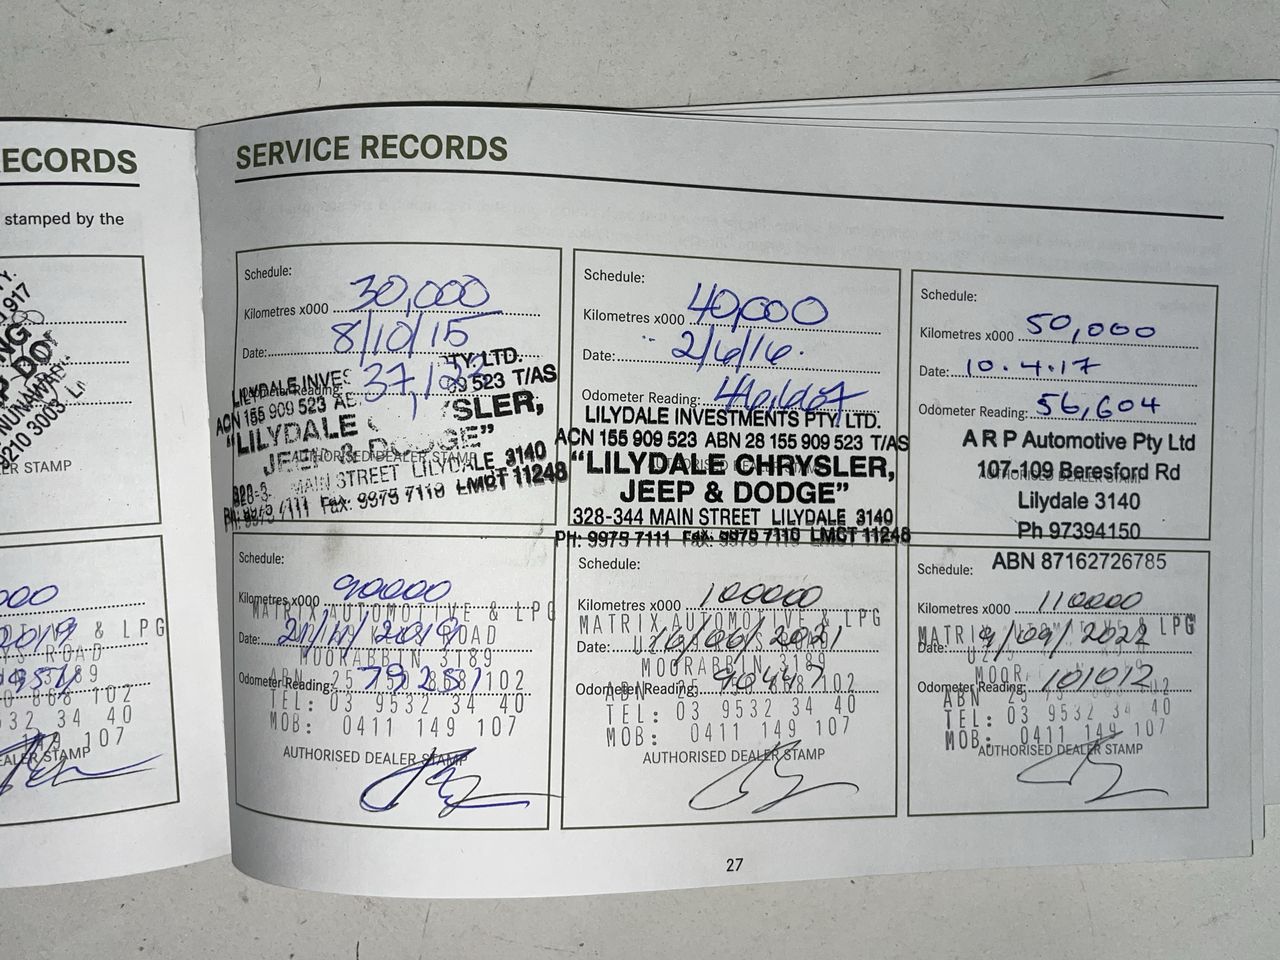 ECORDS
stamped by the
SERVICE RECORDS
Schedule:
Kilometres x000 30,000
Date: 8/10/15
Odometer Reading: 37,1
LILYDALE INVES TY. LTD.
ACN 155 909 523 AB 09 523 T/AS
"LILYDALE YSLER,
JEEP & DODGE"
AUTHORISED DEALER STAMP
328-3 MAIN STREET LILYDALE 3140
PH: 9975 7111 Fax: 9975 7110 LMCT 11248
Schedule:
Kilometres x000 40,000
Date: 2/6/16.
Odometer Reading:
LILYDALE INVESTMENTS PTY. LTD.
ACN 155 909 523 ABN 28 155 909 523 T/AS
"LILYDALE CHRYSLER,
JEEP & DODGE"
328-344 MAIN STREET LILYDALE 3140
PH: 9975 7111 Fax: 9975 7110 LMCT 11248
Schedule:
Kilometres x000 50,000
Date: 10.4.17
Odometer Reading: 56,604
A R P Automotive Pty Ltd
107-109 Beresford Rd
AUTHORISED DEALER STAMP
Lilydale 3140
Ph 97394150
ABN 87162726785
ER STAMP
000
2019
& LPG
ROAD
3189
868 102
532 34 40
149 107
EALER STAMP
Schedule:
Kilometres x000 90000
MATRIX AUTOMOTIVE & LPG
Date: 2019
ROAD
MOORABBIN 3189
Odometer Reading: 79251
ABN 25 868 102
TEL: 03 9532 34 40
MOB: 0411 149 107
AUTHORISED DEALER STAMP
Schedule:
Kilometres x000 100000
MATRIX AUTOMOTIVE & LPG
Date: 2021
MOORABBIN 3189
Odometer Reading: 90447
ABN 102
TEL: 03 9532 34 40
MOB: 0411 149 107
AUTHORISED DEALER STAMP
Schedule:
Kilometres x000 110000
MATRIX & LPG
Date: 9/09/2022
MOOR
Odometer Reading: 101012
ABN 102
TEL: 03 9532 34 40
MOB: 0411 149 107
AUTHORISED DEALER STAMP
27